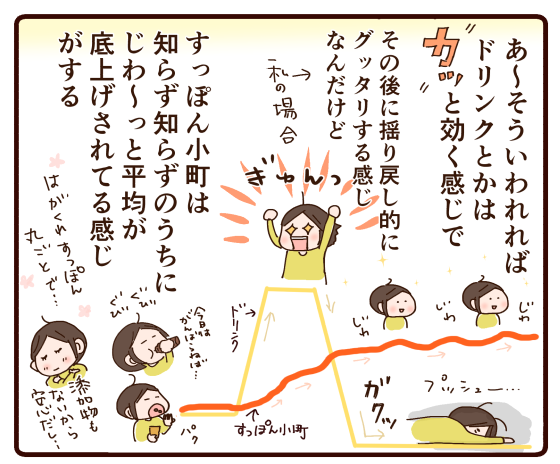 あ～そういわれれば
ドリンクとかは
"ガッ"と効く感じで
その後に揺り戻し的に
グッタリする感じ
なんだけど
私の場合
ぎゅんっ
すっぽん小町は
知らず知らずのうちに
じわ～っと平均が
底上げされてる感じ
がする
はがくれすっぽん
丸ごとで…
添加物も
ないから
安心だし…
ぐび
ぐび
今日は
がんばらねば…
パク
ドリンク
すっぽん小町
じわ
じわ
じわ
じわ
ガクッ
プッシュー…